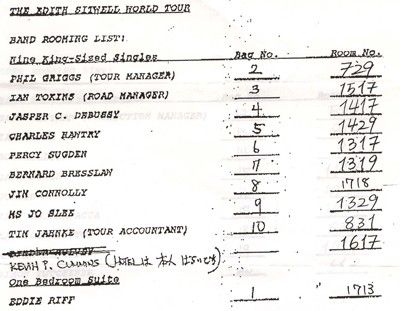 THE EDITH SITWELL WORLD TOUR
BAND ROOMING LIST:
Nine King-Sized Singles Bag No. Room No.
PHIL GRIGGS (TOUR MANAGER) 2 729
IAN TOKINS (ROAD MANAGER) 3 1517
JASPER C. DEBUSSY 4 1417
CHARLES HANTRY 5 1429
PERCY SUGDEN 6 1317
BERNARD BRESSLAN 7 1319
JIM CONNOLLY 8 1718
MS JO SLEE 9 1329
TIM JAHNKE (TOUR ACCOUNTANT) 10 831
KEVIN P. CUMMINS (HOTELは 本人 はらいです) 1617
One Bedroom Suite
EDDIE RIFF 1 1713